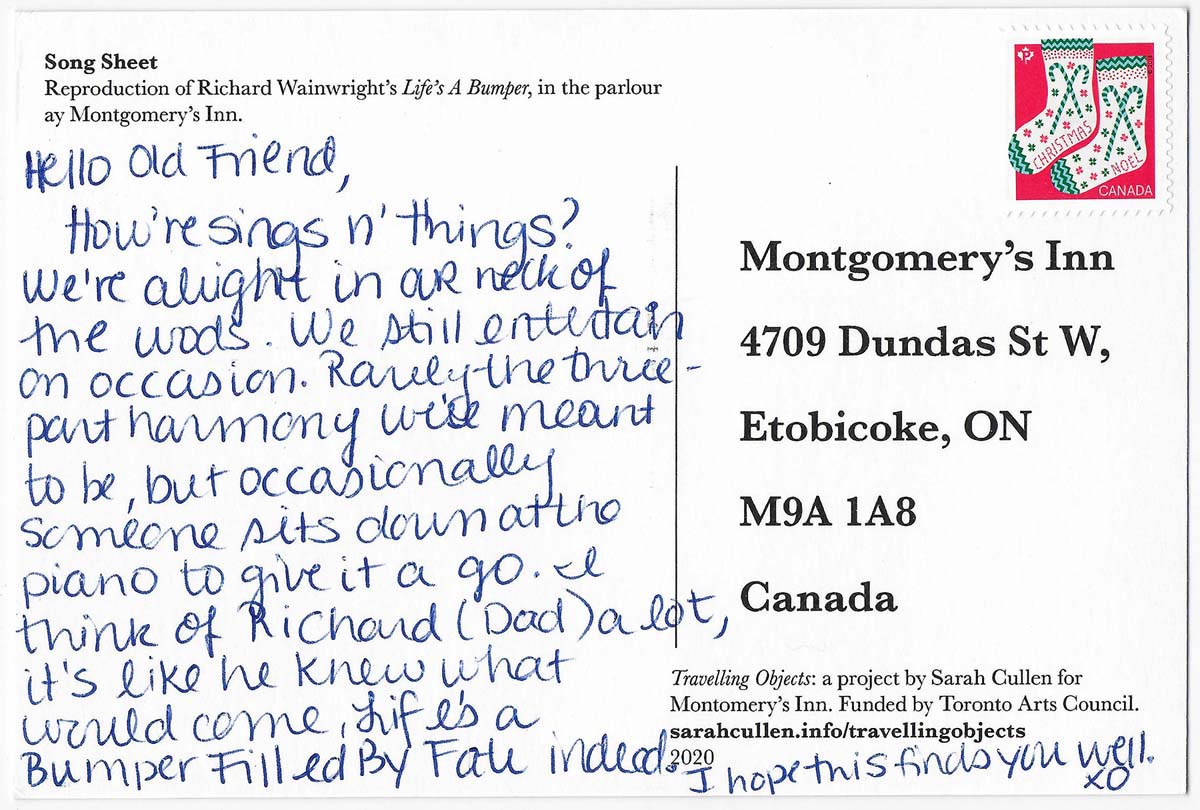 Song Sheet
Reproduction of Richard Wainwright's Life's A Bumper, in the parlour
ay Montgomery's Inn.
Hello Old Friend,
How're sings n' things?
We're alright in our neck of
the woods. We still entertain
on occasion. Rarely the three-
part harmony we're meant
to be, but occasionally
someone sits down at the
piano to give it a go. I
think of Richard (Dad) a lot,
it's like he knew what
would come, Life's a
Bumper Filled By Fate indeed.
I hope this finds you well.
XO
P
CHRISTMAS
NOËL
CANADA
Montgomery's Inn
4709 Dundas St W,
Etobicoke, ON
M9A 1A8
Canada
Travelling Objects: a project by Sarah Cullen for
Montomery's Inn. Funded by Toronto Arts Council.
sarahcullen.info/travellingobjects
2020